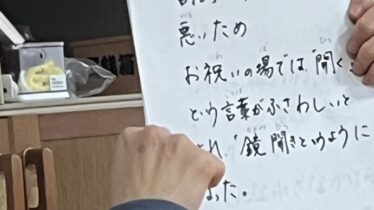 悪いため
お祝いの場では「開く」
という言葉がふさわしいと
され、"鏡開きというように
なった。